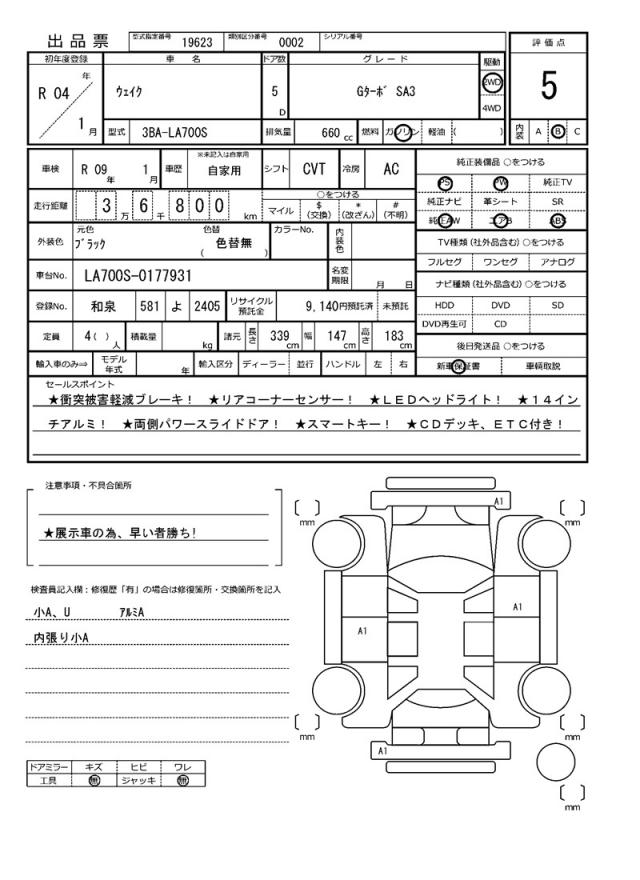 出品票 型式指定番号 19623 類別区分番号 0002 シリアル番号
評価点
5
内装 A B C
初年度登録 車名 ドア数 グレード 駆動
R 04 年 1 月
ウェイク 5 D Gターボ SA3 2WD 4WD
型式 3BA-LA700S 排気量 660 cc 燃料 ガソリン 軽油 ( )
車検 R 09 年 1 月 車歴 ※未記入は自家用 自家用 シフト CVT 冷房 AC
走行距離 3 万 6 千 8 0 0 km
○をつける
マイル $ (交換) * (改ざん) # (不明)
外装色 元色 ブラック 色替 ( 色替無 ) カラーNo. 内装色
車台No. LA700S-0177931 名変期限 月 日
登録No. 和泉 581 よ 2405 リサイクル預託金 9,140円預託済 未預託
定員 4( ) 人 積載量 kg 諸元 長さ 339 cm 幅 147 cm 高さ 183 cm
輸入車のみ⇒ モデル年式 年 輸入区分 ディーラー 並行 ハンドル 左 右
純正装備品 ○をつける
PS PW 純正TV
純正ナビ 革シート SR
純正AW エアB ABS
TV種類 (社外品含む) ○をつける
フルセグ ワンセグ アナログ
ナビ種類 (社外品含む) ○をつける
HDD DVD SD
DVD再生可 CD
後日発送品 ○をつける
新車保証書 車輌取説
セールスポイント
★衝突被害軽減ブレーキ! ★リアコーナーセンサー! ★LEDヘッドライト! ★14イン
チアルミ! ★両側パワースライドドア! ★スマートキー! ★CDデッキ、ETC付き!
注意事項・不具合箇所
★展示車の為、早い者勝ち!
検査員記入欄:修復歴「有」の場合は修復箇所・交換箇所を記入
小A、U アルミA
内張り小A
ドアミラー キズ ヒビ ワレ
工具 無 ジャッキ 無
A1
[ ] mm [ ] mm
A1
A1
[ ] mm [ ] mm
A1
[ ] mm